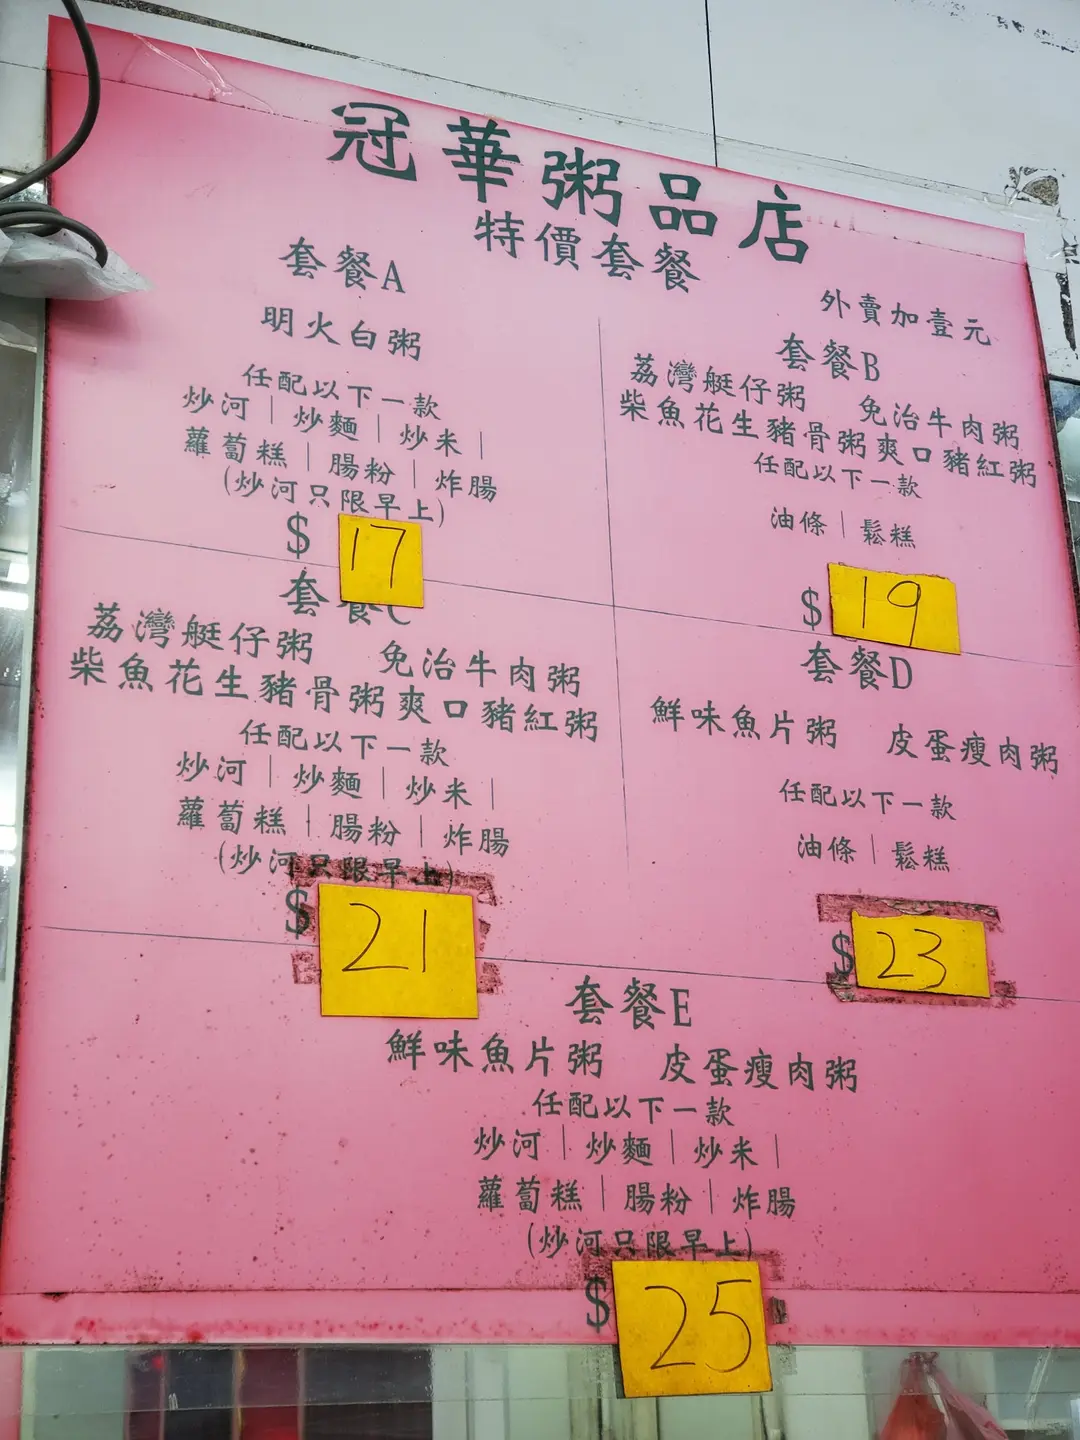 冠華粥品店
特價套餐
外賣加壹元
套餐A
明火白粥
任配以下一款
炒河｜炒麵｜炒米｜
蘿蔔糕｜腸粉｜炸腸
(炒河只限早上)
$ 17
套餐B
荔灣艇仔粥 免治牛肉粥
柴魚花生豬骨粥爽口豬紅粥
任配以下一款
油條｜鬆糕
$ 19
套餐C
荔灣艇仔粥 免治牛肉粥
柴魚花生豬骨粥爽口豬紅粥
任配以下一款
炒河｜炒麵｜炒米｜
蘿蔔糕｜腸粉｜炸腸
(炒河只限早上)
$ 21
套餐D
鮮味魚片粥 皮蛋瘦肉粥
任配以下一款
油條｜鬆糕
$ 23
套餐E
鮮味魚片粥 皮蛋瘦肉粥
任配以下一款
炒河｜炒麵｜炒米｜
蘿蔔糕｜腸粉｜炸腸
(炒河只限早上)
$ 25